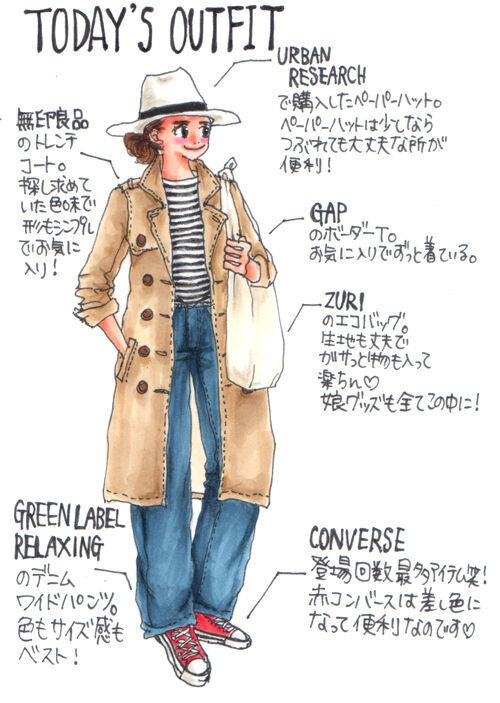 TODAY'S OUTFIT
URBAN
RESEARCH
で購入したペーパーハット。
ペーパーハットは少しなら
つぶれても大丈夫な所が
便利!
無印良品
のトレンチ
コート。
探し求めて
いた色味で
形もシンプル
でお気に
入り!
GAP
のボーダーT。
お気に入りでずっと着ている。
ZURI
のエコバッグ。
生地も丈夫で
ガサっと物も入って
楽ちん♡
娘グッズも全てこの中に!
GREEN LABEL
RELAXING
のデニム
ワイドパンツ。
色もサイズ感も
ベスト!
CONVERSE
登場回数最多アイテム笑!
赤コンバースは差し色に
なって便利なのです♡